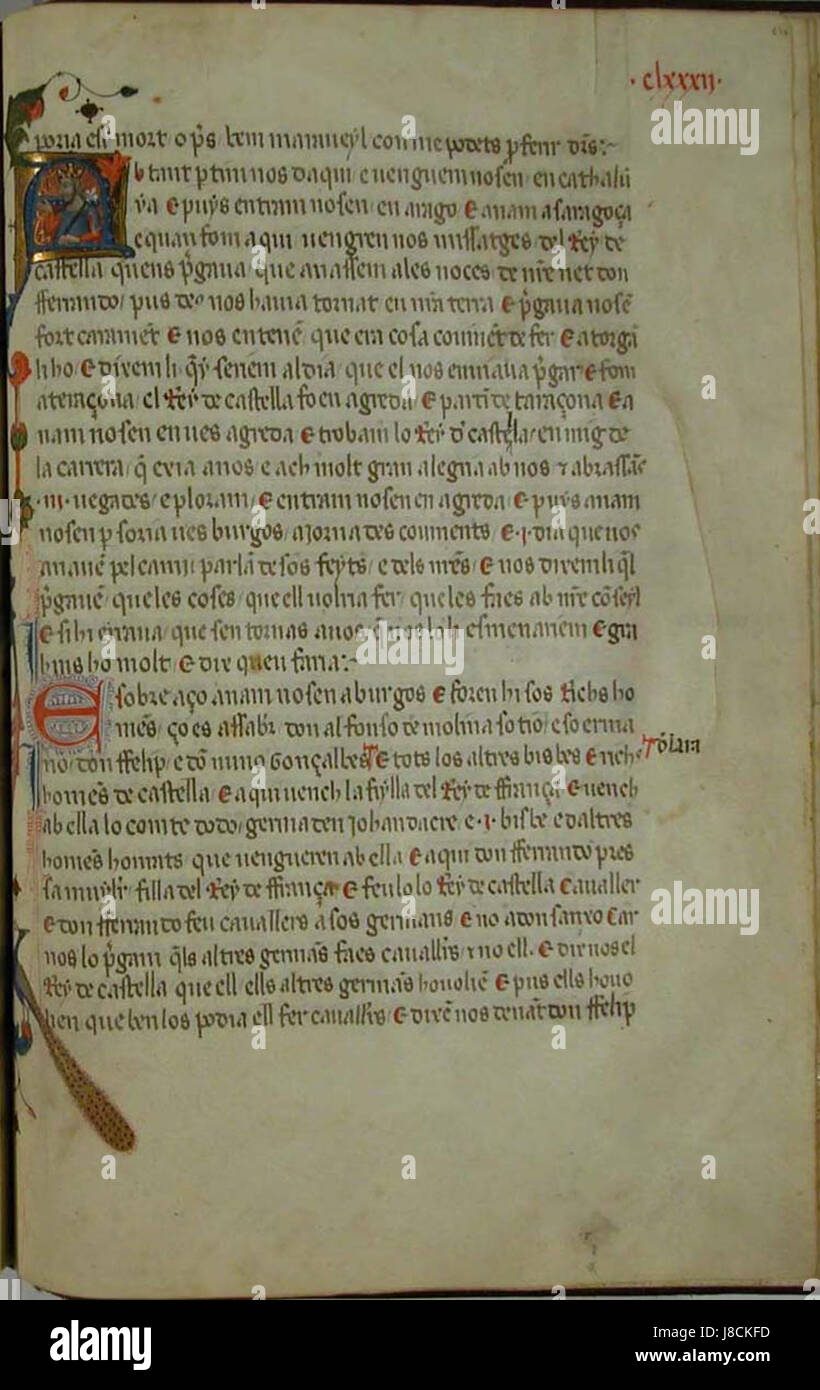 · clxxxij ·
mort o p̄s ben manueyl con me podets
b tant ptim nos daqui e uenguem nosen en cathalu
ya E puys entram nosen en arago E anam a saragoça
e quan fom aqui uengren nos missatges del Rey de
castella quens p̄gaua que anassem a les noces de net don
fferrando pus nos hauia tornat en terra E p̄gaua nosē
fort E nos entenē que era cosa de fer E atorgā
li ho E dixem li senem al dia que el nos enuiaua p̄gar E fom
a teraçona el Rey de castella fo en agreda E de taraçona E a
nam nosen en ues agreda E trobam lo Rey en mig de
la carrera q̄ exia a nos e ach molt gran alegria ab nos
·iij· uegades e ploram E entram nosen en agreda E puys anam
nosen p soria ues burgos a jornades E ·i· dia que nos
anauē pel cami parlā de sos feyts e dels E nos dixem li
p̄gauē que les coses que ell uolria fer que les faes ab cōseyl
E si hi erraua que sen tornas a nos esmenariem E gra
ho molt E dix queu faria
E sobre aço anam nosen a burgos E foren hi sos Richs ho
mēs ço es don alfonso de molina so tio e so erma
no don ffelip e dō nuno Gonçalbes E tots los altres bisbes E
homēs de castella E aqui uench la fiylla del Rey de ffrança E uench
ab ella lo comte dodo germa den johan dacre e ·i· bisbe e daltres
homēs honrats que uengueren ab ella E aqui don fferrando pres
sa muyler filla del Rey de ffrança E feu lo lo Rey de castella Caualler
E don fferrando feu cauallers a sos germans E no a don sanxo Car
nos lo p̄gam altres germās faes no ell. E dix nos el
Rey de castella que ell e ells altres germās ho uoliē E pus ells ho uo
lien que ben los podia ell fer E dixē nos ffelip
alamy
a
alamy
Image ID: J8CKFD
www.alamy.com